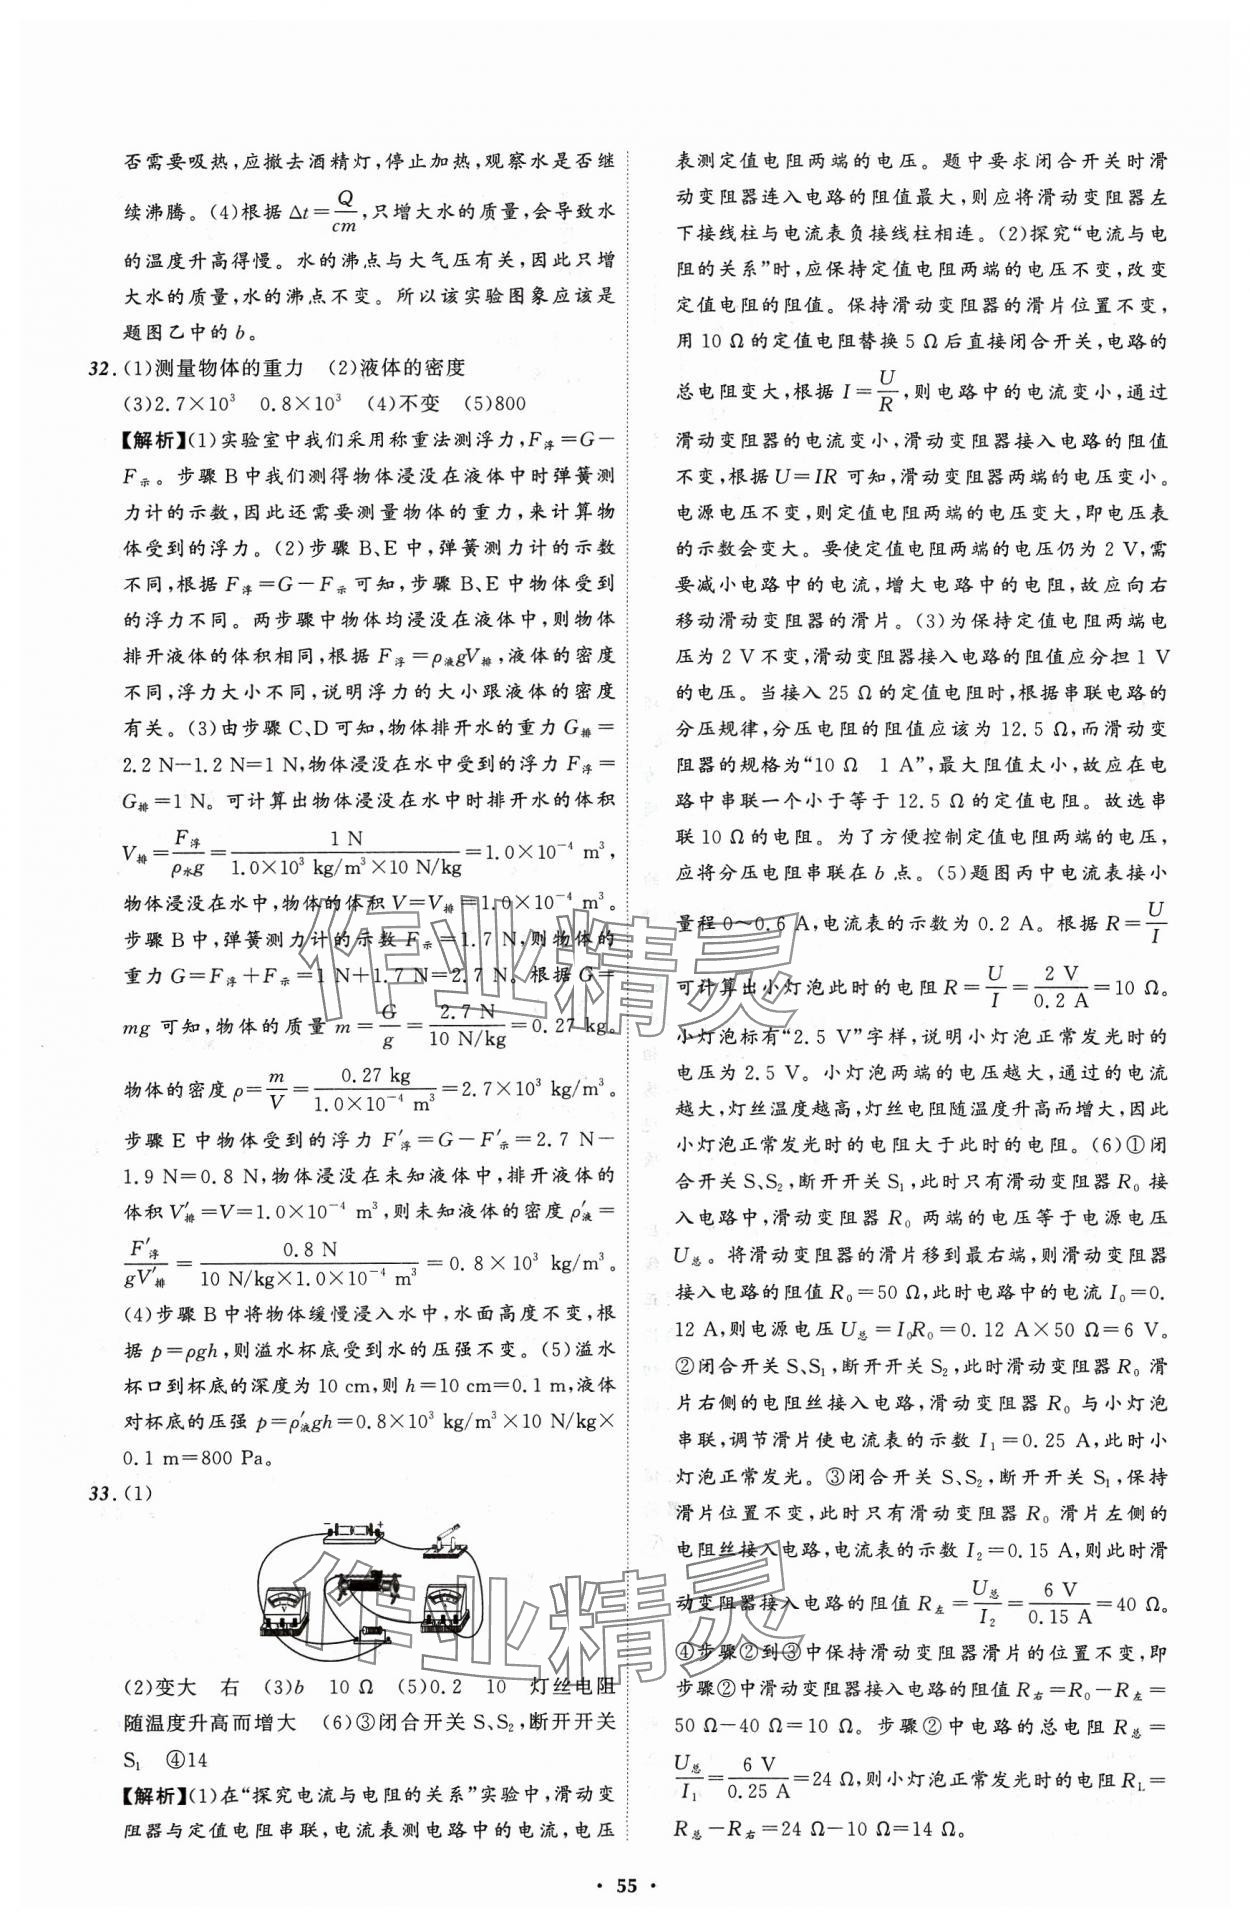 否需要吸热,应撤去酒精灯,停止加热,观察水是否继
续沸腾。(4)根据 Δt=Q/cm,只增大水的质量,会导致水
的温度升高得慢。水的沸点与大气压有关,因此只增
大水的质量,水的沸点不变。所以该实验图象应该是
题图乙中的 b。
32.(1)测量物体的重力 (2)液体的密度
(3)2.7×10³ 0.8×10³ (4)不变 (5)800
【解析】(1)实验室中我们采用称重法测浮力,F浮=G-
F示。步骤 B 中我们测得物体浸没在液体中时弹簧测
力计的示数,因此还需要测量物体的重力,来计算物
体受到的浮力。(2)步骤 B、E 中,弹簧测力计的示数
不同,根据 F浮=G-F示 可知,步骤 B、E 中物体受到
的浮力不同。两步骤中物体均浸没在液体中,则物体
排开液体的体积相同,根据 F浮=ρ液gV排,液体的密度
不同,浮力大小不同,说明浮力的大小跟液体的密度
有关。(3)由步骤 C、D 可知,物体排开水的重力 G排=
2.2 N-1.2 N=1 N,物体浸没在水中受到的浮力 F浮=
G排=1 N。可计算出物体浸没在水中时排开水的体积
V排=F浮/ρ水g=1 N/(1.0×10³ kg/m³×10 N/kg)=1.0×10⁻⁴ m³,
物体浸没在水中,物体的体积 V=V排=1.0×10⁻⁴ m³。
步骤 B 中,弹簧测力计的示数 F示=1.7 N,则物体的
重力 G=F浮+F示=1 N+1.7 N=2.7 N。根据 G=
mg 可知,物体的质量 m=G/g=2.7 N/(10 N/kg)=0.27 kg。
物体的密度 ρ=m/V=0.27 kg/(1.0×10⁻⁴ m³)=2.7×10³ kg/m³。
步骤 E 中物体受到的浮力 F′浮=G-F′示=2.7 N-
1.9 N=0.8 N,物体浸没在未知液体中,排开液体的
体积 V′排=V=1.0×10⁻⁴ m³,则未知液体的密度 ρ′液=
F′浮/gV′排=0.8 N/(10 N/kg×1.0×10⁻⁴ m³)=0.8×10³ kg/m³。
(4)步骤 B 中将物体缓慢浸入水中,水面高度不变,根
据 p=ρgh,则溢水杯底受到水的压强不变。(5)溢水
杯口到杯底的深度为 10 cm,则 h=10 cm=0.1 m,液体
对杯底的压强 p=ρ′液gh=0.8×10³ kg/m³×10 N/kg×
0.1 m=800 Pa。
33.(1)
- +
V
A
(2)变大 右 (3)b 10 Ω (5)0.2 10 灯丝电阻
随温度升高而增大 (6)③闭合开关 S、S₂,断开开关
S₁ ④14
【解析】(1)在“探究电流与电阻的关系”实验中,滑动变
阻器与定值电阻串联,电流表测电路中的电流,电压
表测定值电阻两端的电压。题中要求闭合开关时滑
动变阻器连入电路的阻值最大,则应将滑动变阻器左
下接线柱与电流表负接线柱相连。(2)探究“电流与电
阻的关系”时,应保持定值电阻两端的电压不变,改变
定值电阻的阻值。保持滑动变阻器的滑片位置不变,
用 10 Ω 的定值电阻替换 5 Ω 后直接闭合开关,电路的
总电阻变大,根据 I=U/R,则电路中的电流变小,通过
滑动变阻器的电流变小,滑动变阻器接入电路的阻值
不变,根据 U=IR 可知,滑动变阻器两端的电压变小。
电源电压不变,则定值电阻两端的电压变大,即电压表
的示数会变大。要使定值电阻两端的电压仍为 2 V,需
要减小电路中的电流,增大电路中的电阻,故应向右
移动滑动变阻器的滑片。(3)为保持定值电阻两端电
压为 2 V 不变,滑动变阻器接入电路的阻值应分担 1 V
的电压。当接入 25 Ω 的定值电阻时,根据串联电路的
分压规律,分压电阻的阻值应该为 12.5 Ω,而滑动变
阻器的规格为“10 Ω 1 A”,最大阻值太小,故应在电
路中串联一个小于等于 12.5 Ω 的定值电阻。故选串
联 10 Ω 的电阻。为了方便控制定值电阻两端的电压,
应将分压电阻串联在 b 点。(5)题图丙中电流表接小
量程 0~0.6 A,电流表的示数为 0.2 A。根据 R=U/I
可计算出小灯泡此时的电阻 R=U/I=2 V/0.2 A=10 Ω。
小灯泡标有“2.5 V”字样,说明小灯泡正常发光时的
电压为 2.5 V。小灯泡两端的电压越大,通过的电流
越大,灯丝温度越高,灯丝电阻随温度升高而增大,因此
小灯泡正常发光时的电阻大于此时的电阻。(6)①闭
合开关 S、S₂,断开开关 S₁,此时只有滑动变阻器 R₀ 接
入电路中,滑动变阻器 R₀ 两端的电压等于电源电压
U总。将滑动变阻器的滑片移到最右端,则滑动变阻器
接入电路的阻值 R₀=50 Ω,此时电路中的电流 I₀=0.
12 A,则电源电压 U总=I₀R₀=0.12 A×50 Ω=6 V。
②闭合开关 S、S₁,断开开关 S₂,此时滑动变阻器 R₀ 滑
片右侧的电阻丝接入电路,滑动变阻器 R₀ 与小灯泡
串联,调节滑片使电流表的示数 I₁=0.25 A,此时小
灯泡正常发光。③闭合开关 S、S₂,断开开关 S₁,保持
滑片位置不变,此时只有滑动变阻器 R₀ 滑片左侧的
电阻丝接入电路,电流表的示数 I₂=0.15 A,则此时滑
动变阻器接入电路的阻值 R左=U总/I₂=6 V/0.15 A=40 Ω。
④步骤②到③中保持滑动变阻器滑片的位置不变,即
步骤②中滑动变阻器接入电路的阻值 R右=R₀-R左=
50 Ω-40 Ω=10 Ω。步骤②中电路的总电阻 R总=
U总/I₁=6 V/0.25 A=24 Ω,则小灯泡正常发光时的电阻 R_L=
R总-R右=24 Ω-10 Ω=14 Ω。
作业精灵
作业精灵
· 55 ·